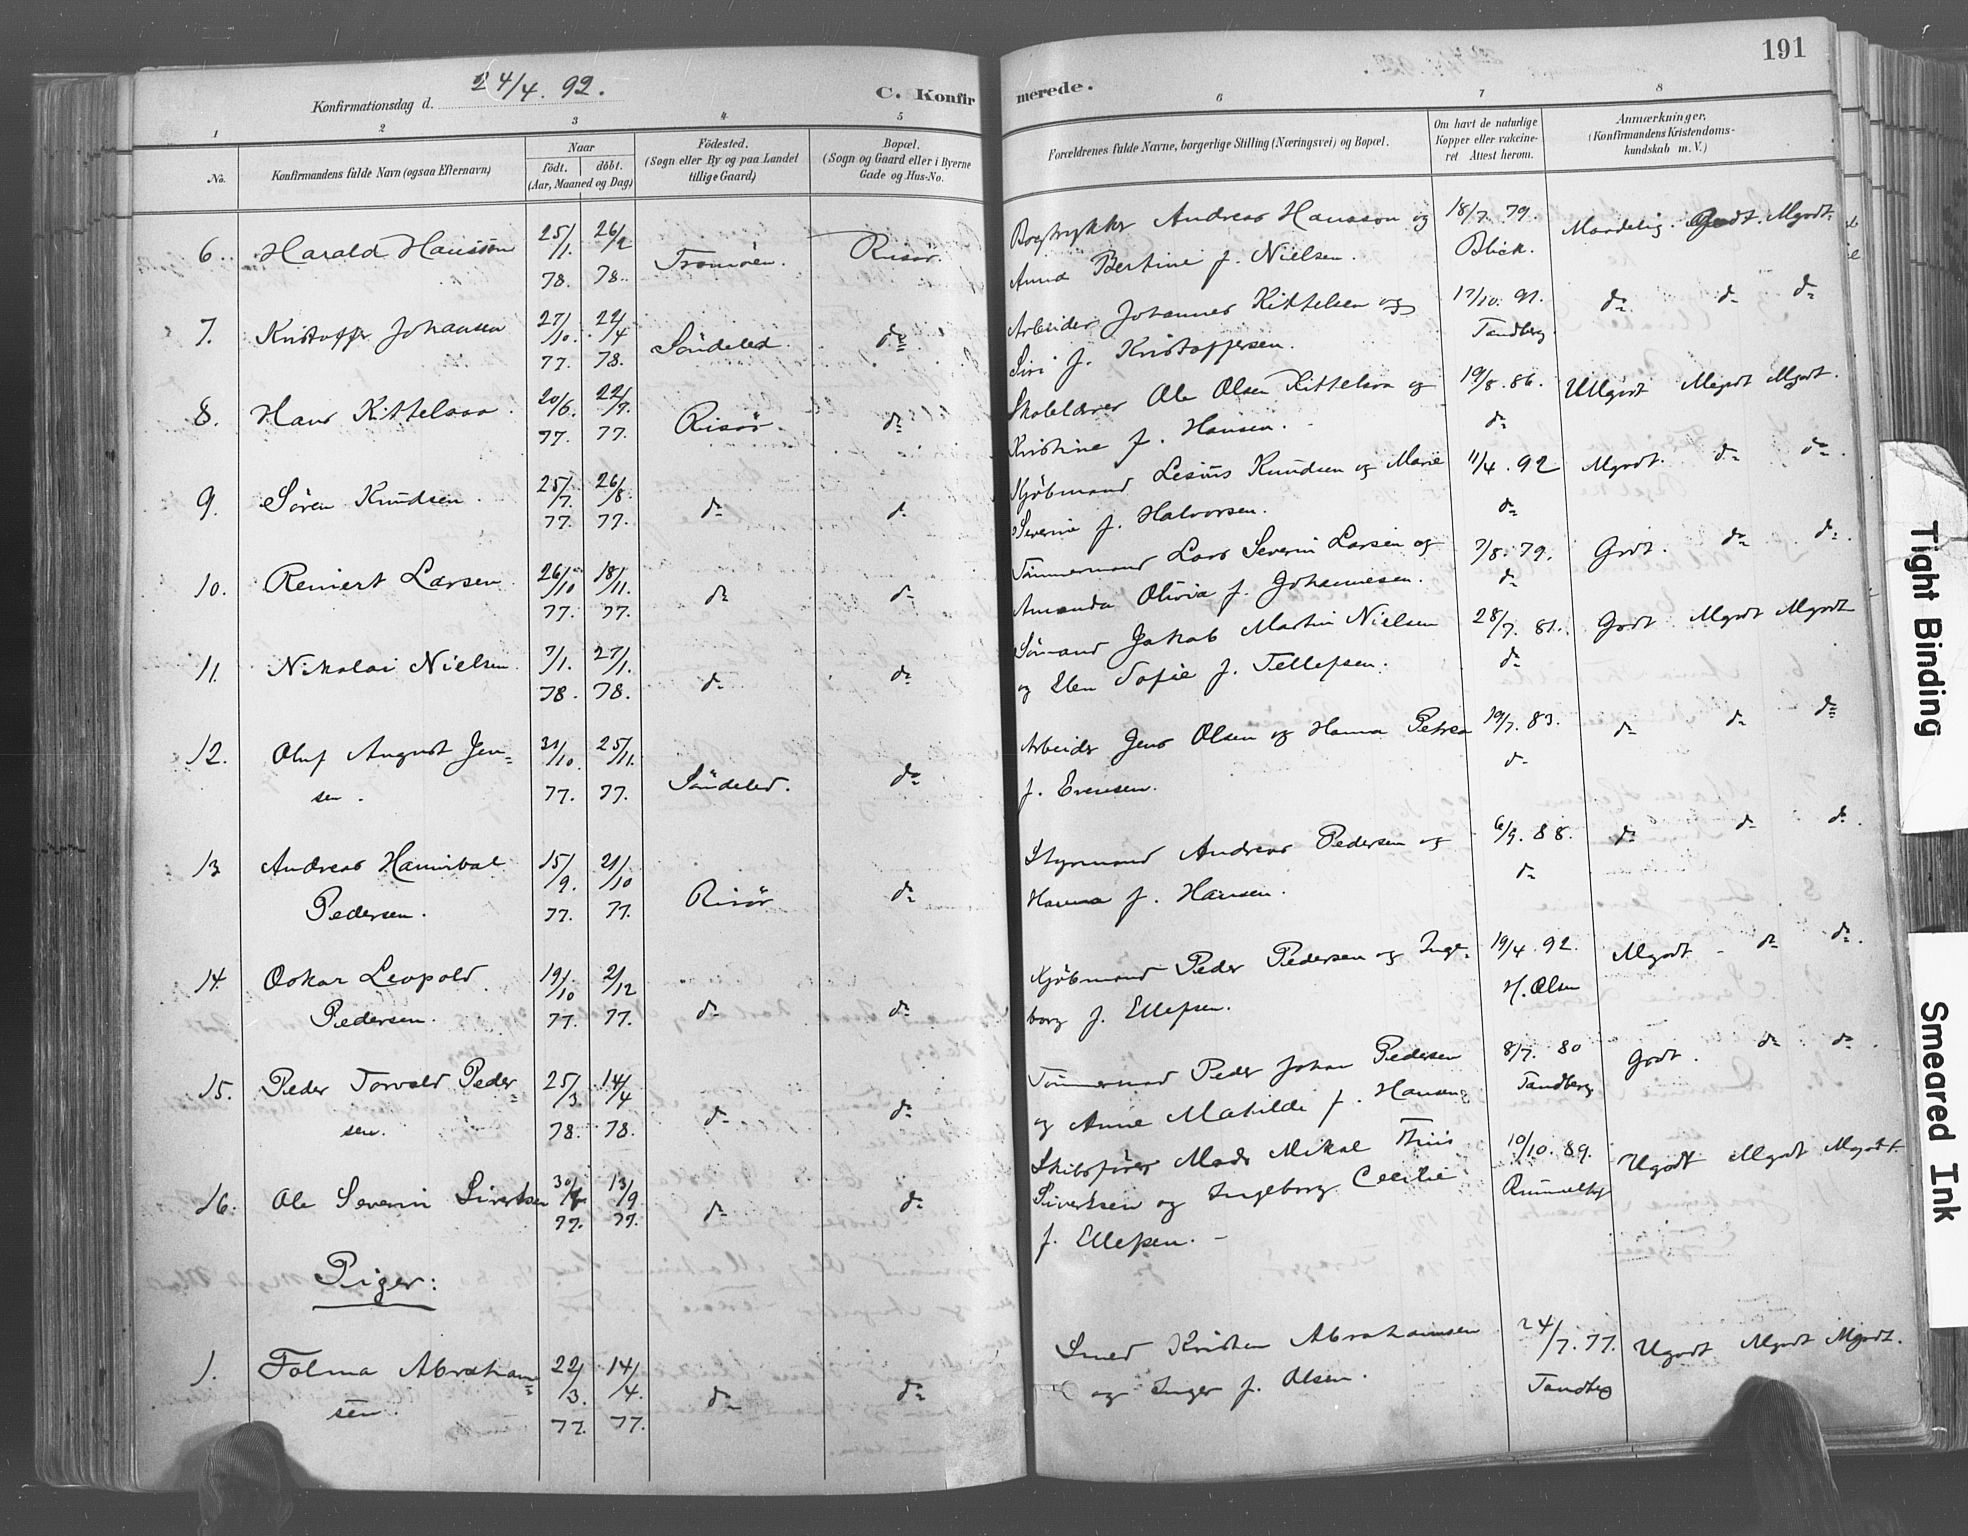 Konfirmationsdag d. 24/4. 92.
C. Konfirmerede.
191
1 2 3 4 5 6 7 8
No.
Konfirmandens fulde Navn (ogsaa Efternavn)
Naar
født. døbt.
(Aar, Maaned og Dag)
Fødested.
(Sogn eller By og paa Landet
tillige Gaard)
Bopæl.
(Sogn og Gaard eller i Byerne
Gade og Hus-No.
Forældrenes fulde Navne, borgerlige Stilling (Næringsvei) og Bopæl.
Om havt de naturlige
Kopper eller vakcine-
ret Attest herom.
Anmærkninger,
(Konfirmandens Kristendoms-
kundskab m. V.)
6. Harald Hansson 25/1. 78. 26/2 78. Tromøen. Risør. Bogtrykker Andreas Hansson og 18/7. 79. Maadelig. Mgodt.
Anna Bertine f. Nielsen. Blich.
7. Kristoffer Johansen 27/10. 77. 22/4 78. Søndeled. do Arbeider Johannes Kittelsen og 17/10. 91. do do do
Siri f. Kristoffersen. Tandberg.
8. Hans Kittelsen. 20/6. 77. 22/7. 77. Risør. do Skolelærer Ole Olsen Kittelsen og 19/8. 86. Ugodt Megodt Mgodt.
Kristine f. Hansen. do
9. Søren Knudsen. 25/7. 77. 26/8. 77. do do Kjøbmand Knudsen og Marie 11/4. 92 Mgodt. do do
Severine f. Halvorsen. do
10. Reinert Larsen. 26/10 77. 18/11. 77. do do Tømmermand Lars Severin Larsen og 7/8. 79. Godt. do do
Amanda Olivia f. Johannesen. do
11. Nikolai Nielsen. 7/1. 78. 27/1. 78. do do Sømand Jakob Martin Nielsen 28/7. 81. Godt Mgodt Mgodt
og Elen Sofie f. Tellefsen. do
12. Oluf August Jen= 31/10. 77. 25/11. 77. Søndeled. do Arbeider Jens Olsen og Hanna Petrea 19/7. 83. do do do
sen. f. Evensen. do
13 Andreas Hannibal 15/9. 77. 21/10 77. Risør do Styrmand Andreas Pedersen og 6/9. 88. do do do
Pedersen. Hanna f. Hansen. do
14. Oskar Leopold 19/10 77. 2/12 77. do do Kjøbmand Peder Pedersen og Inge= 19/4. 92. Mgodt do do
Pedersen. borg f. Ellefsen. H. Olsen
15. Peder Torvald Peder= 25/3 78. 14/4 78. do do Tømmermand Peder Johan Pedersen 8/7. 80 Godt. do do
sen. og Anne Matilde f. Hansen. Tandberg
16. Ole Severin Sivertsen 30/ 77. 13/9 77. do do Skibsfører Mads Mikal Thiis 10/10. 89. Ugodt Mgodt Mgodt.
Sivertsen og Ingeborg Cecilie
f. Ellefsen.
Piger:
1. Tolma Abraham= 22/3. 77. 14/4. 77. do do Smed Kristen Abrahamsen 24/7. 77. Ugodt Mgodt Mgodt.
sen. og Inger f. Olsen. Tandbg
Tight Binding
Smeared Ink